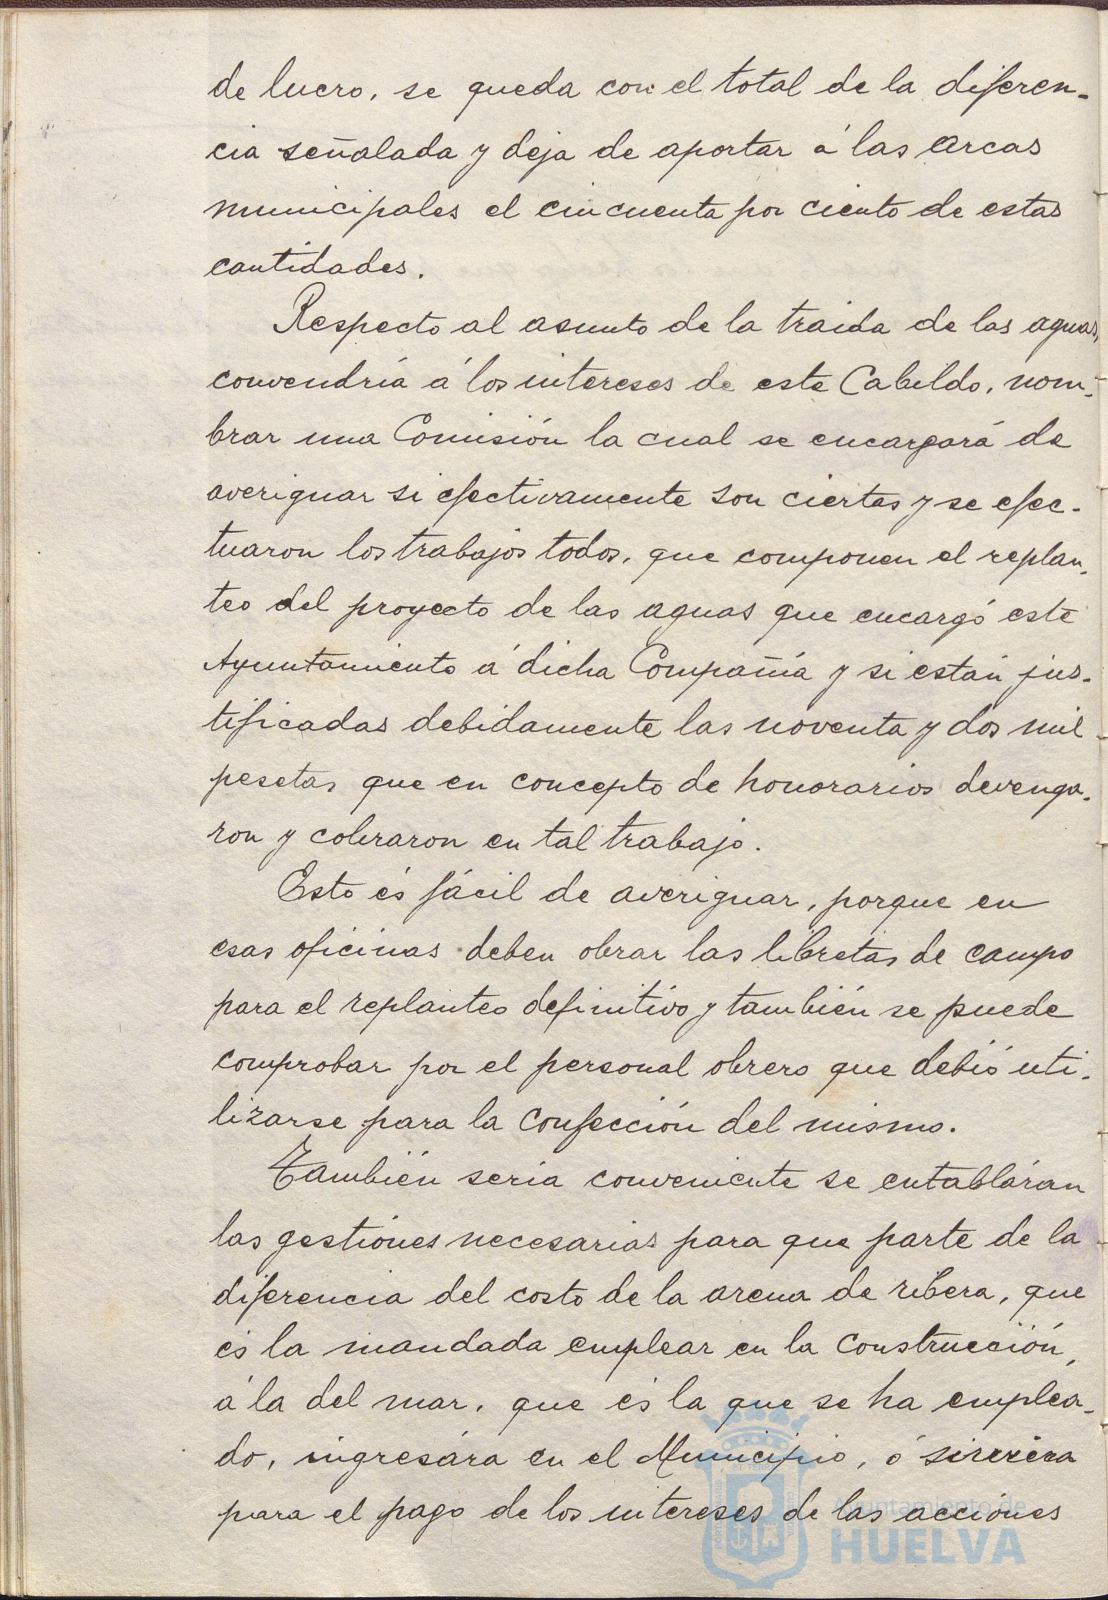 de lucro, se queda con el total de la diferen-
cia señalada y deja de aportar á las arcas
municipales el cincuenta por ciento de estas
cantidades.
Respecto al asunto de la traida de las aguas,
convendría á los intereses de este Cabildo, nom-
brar una Comisión la cual se encargará de
averiguar si efectivamente son ciertas y se efec-
tuaron los trabajos todos, que componen el replan-
teo del proyecto de las aguas que encargó este
Ayuntamiento á dicha Compañía y si están jus-
tificadas debidamente las noventa y dos mil
pesetas que en concepto de honorarios devenga-
ron y cobraron en tal trabajo.
Esto és fácil de averiguar, porque en
esas oficinas deben obrar las libretas de campo
para el replanteo definitivo y también se puede
comprobar por el personal obrero que debió uti-
lizarse para la confección del mismo.
También seria conveniente se entabláran
las gestiónes necesarias para que parte de la
diferencia del costo de la arena de ribera, que
és la mandada emplear en la construcción,
á la del mar, que és la que se ha emplea-
do, ingresára en el Municipio, ó sirviera
para el pago de los intereses de las acciónes
Ayuntamiento de
HUELVA